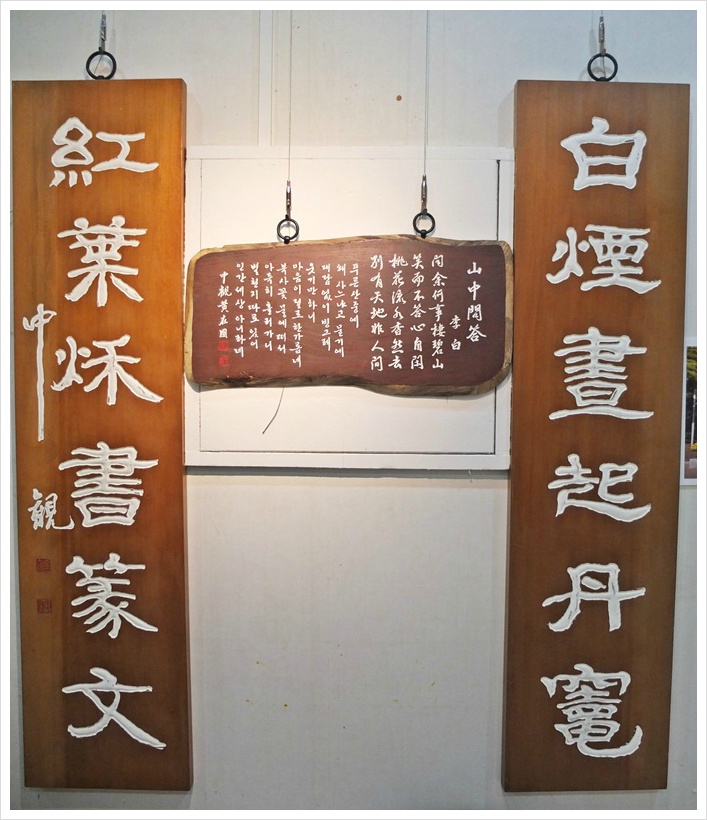 白煙晝起丹竈
山中問答
李白
问余何事棲碧山
笑而不答心自闲
桃花流水杳然去
别有天地非人间
푸른산중에
왜 사느냐고 물기에
대답 없이 빙그레
웃기만 하니
마음이 절로 한가롭네
복사꽃 물에 떠서
아득히 흘러가니
별천지 따로 있어
인간세상 아니하네
中觀
紅葉秌書篆文
中觀